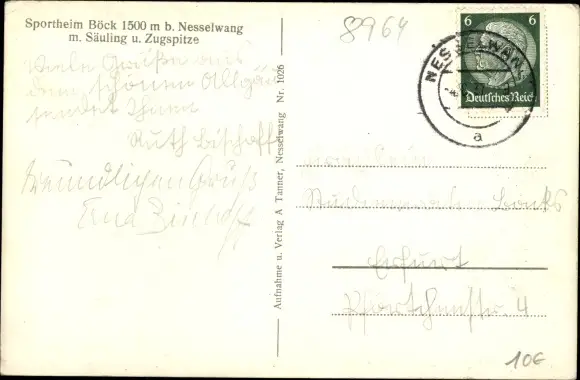 Sportheim Böck 1500 m b. Nesselwang
m. Säuling u. Zugspitze
Viele Grüße aus
dem schönen Allgäu
sendet Ihnen
Ruth Bischoff
Freundlichen Gruß
Bischoff
Aufnahme u. Verlag A Tanner, Nesselwang Nr. 1026
8964
6 6
Deutsches Reich
NESSELWANG
a
Erfurt
4
10€